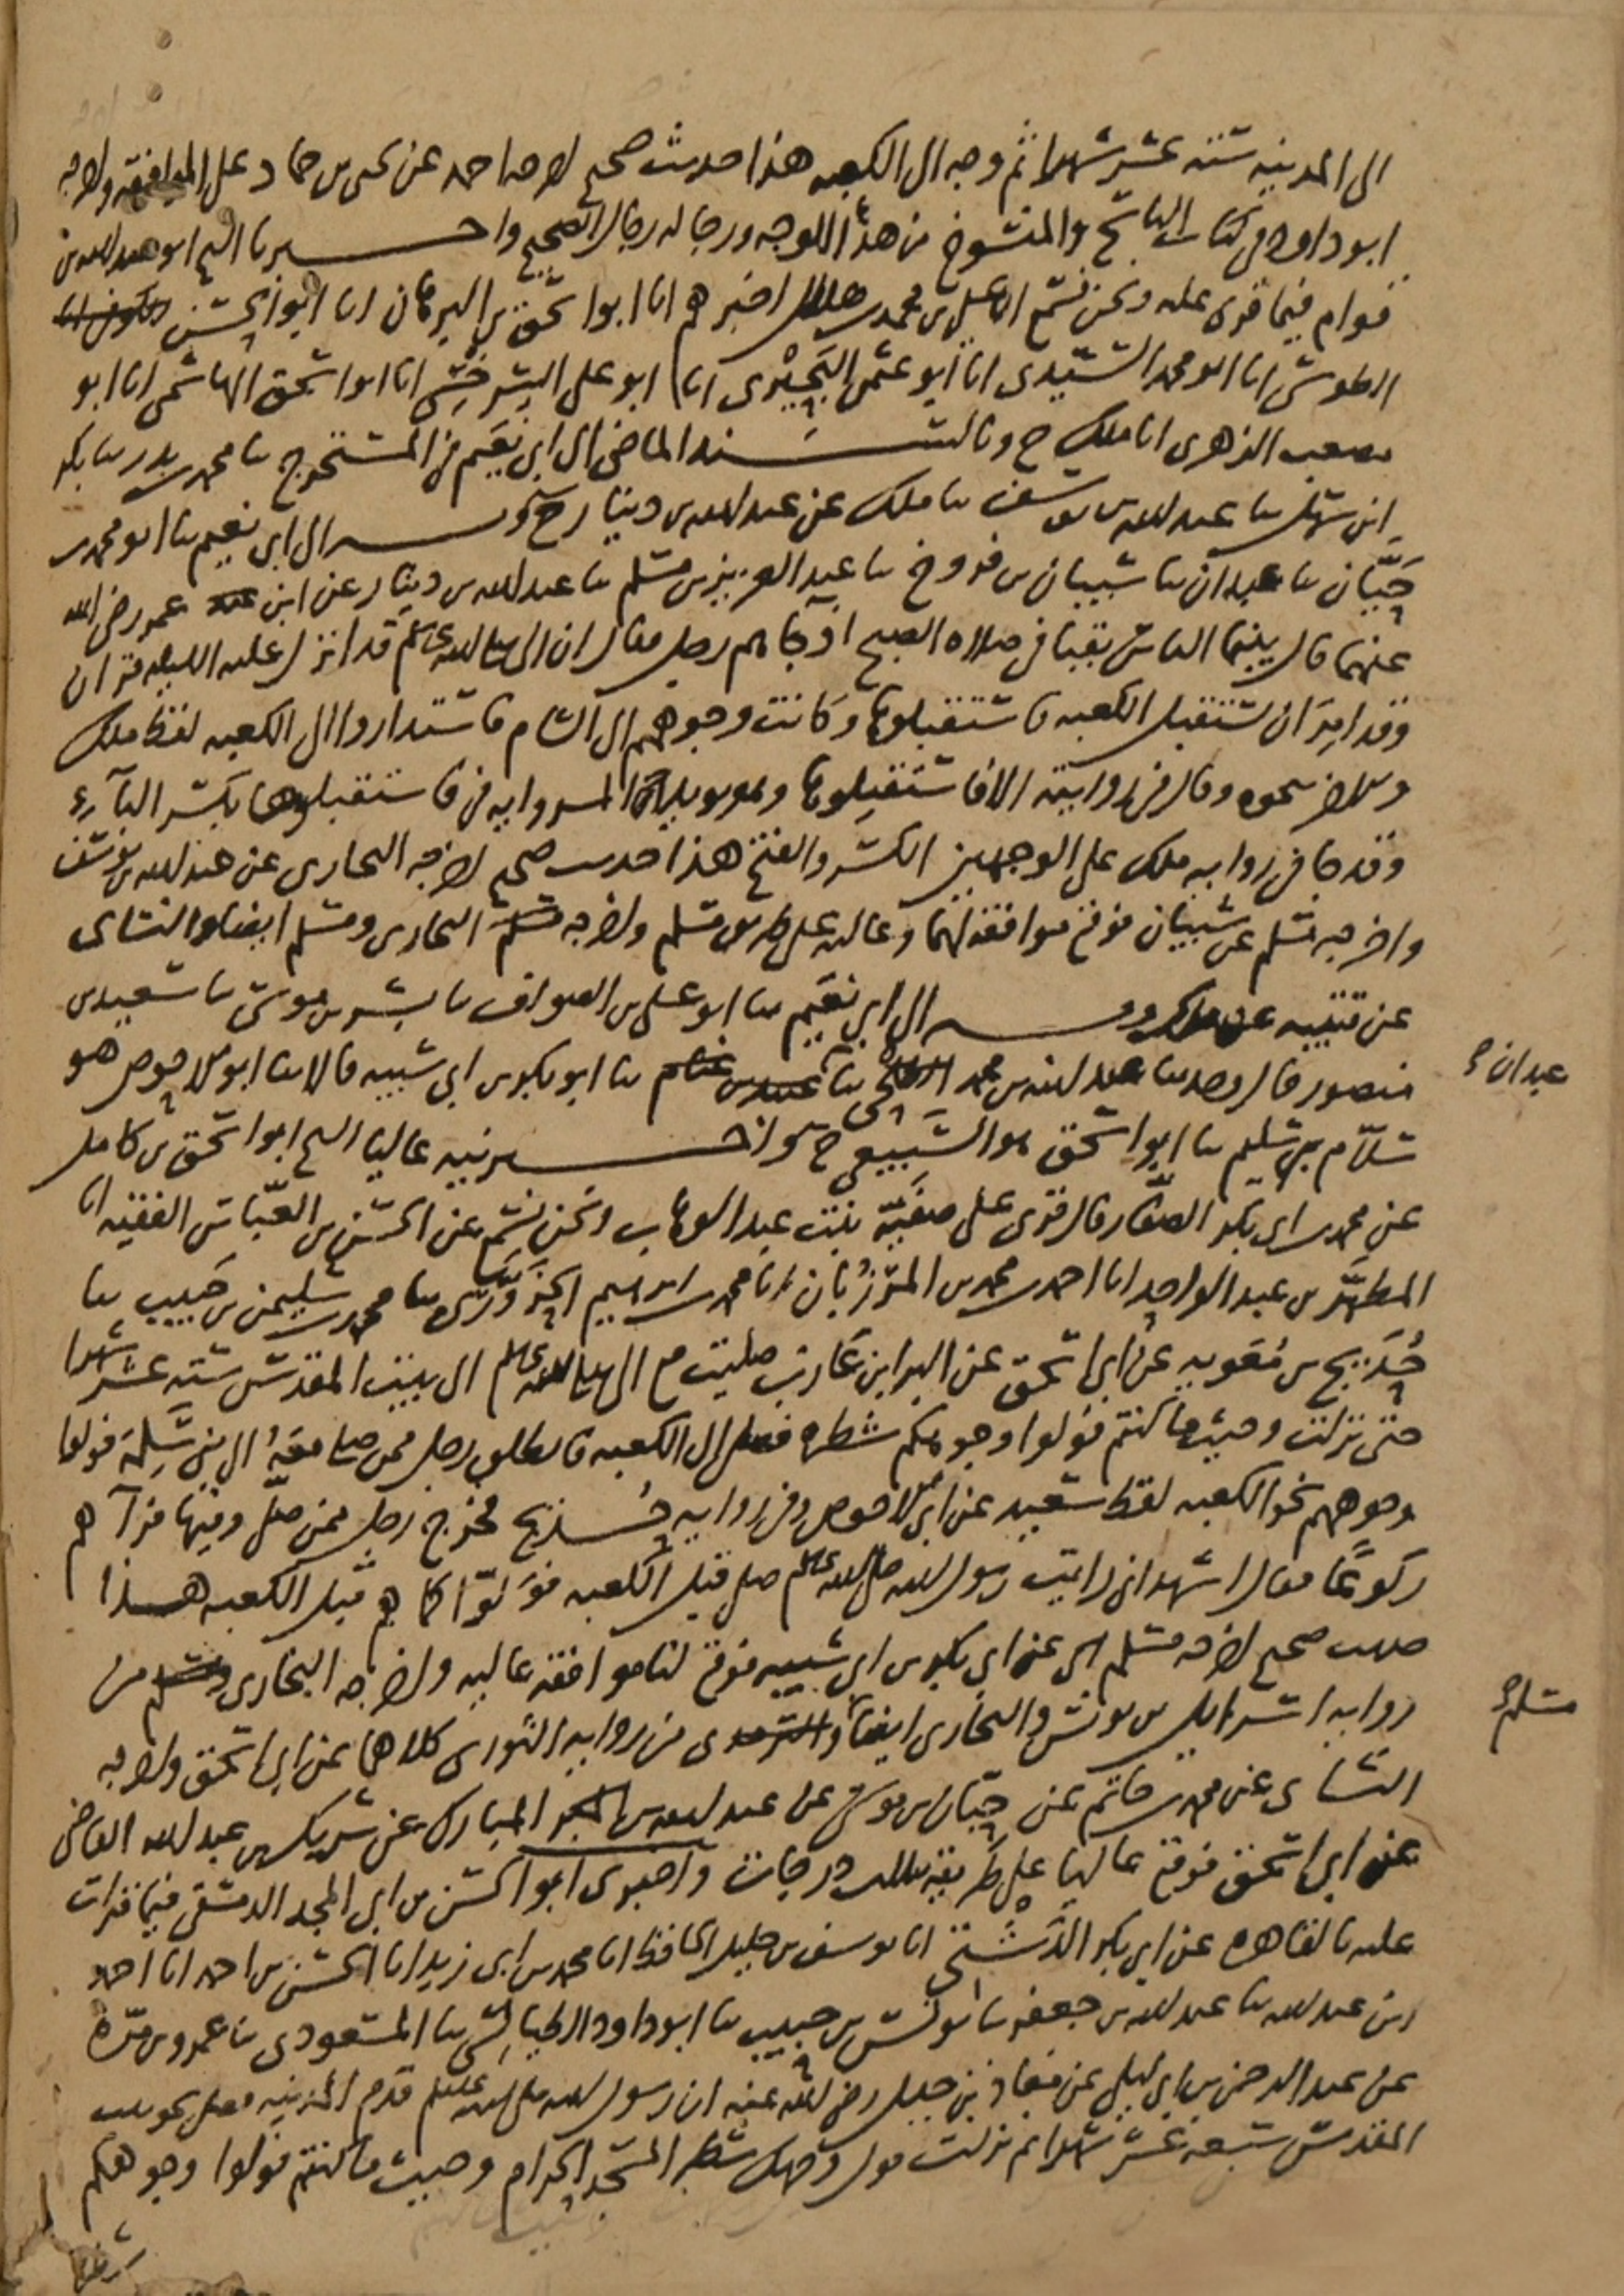 الى المدينه ستة عشر شهرا ثم وجه الى الكعبه هذا حديث صحيح اخرجه احمد عن يحيى بن حماد على الموافقه واخرجه
ابو داود فى كتاب الناسخ والمنسوخ من هذا الوجه ورجاله رجال الصحيح واخبرنا الشيخ ابو عبد الله بن
قوام فيما قرى عليه ونحن نسمع ان على بن محمد بن هلال اخبرهم انا ابو اسحق بن البرهان انا ابو الحسن
الطوسى انا ابو محمد السيدى انا ابو عثمن البحيرى انا ابو على السرخسى انا ابو اسحق الهاشمى انا ابو
مصعب الزهرى انا ملك ح وبالسند الماضى الى ابى نعيم فى المستخرج ثنا محمد بن بدر ثنا بكر
ابن سهل ثنا عبد الله بن يوسف ثنا ملك عن عبد الله بن دينار ح وبه الى ابى نعيم ثنا ابو محمد بن
حيان ثنا عبدان ثنا شيبان بن فروخ ثنا عبد العزيز بن مسلم ثنا عبد الله بن دينار عن ابن عمر رضى الله
عنهما قال بينما الناس بقبا فى صلاه الصبح اذ جاهم رجل فقال ان النبى صلى الله عليه وسلم قد انزل عليه الليله قران
وقد امر ان يستقبل الكعبه فاستقبلوها وكانت وجوههم الى الشام فاستداروا الى الكعبه لفظ ملك
نحوه وقال فى روايته الا فاستقبلوها الروايه فى فاستقبلوها بكسر البآء
وقد جا فى روايه ملك على الوجهين الكسر والفتح هذا حديث صحيح اخرجه البخارى عن عبد الله بن يوسف
واخرجه مسلم عن شيبان فوقع موافقه لهما وعاليه على طريق مسلم واخرجه البخارى ومسلم ايضا والنساى
عن قتيبه عن ملك وبه الى ابى نعيم ثنا ابو على بن الصواف ثنا بشر بن موسى ثنا سعيد بن
منصور قال وحدثنا عبد الله بن محمد ثنا عبيد بن غنام ثنا ابو بكر بن ابى شيبه قالا ثنا ابو الاحوص هو
سلام بن سليم ثنا ابو اسحق هو السبيعى ح واخبرنيه عاليا الشيخ ابو اسحق بن كامل
عن محمد بن ابى بكر الصفار قال قرى على صفية بنت عبد الوهاب ونحن نسمع عن الحسن بن العباس الفقيه انا
المطهر بن عبد الواحد انا احمد بن محمد بن المرزبان انا محمد بن ابرهيم الحزورى ثنا محمد بن سليمن بن حبيب ثنا
حديج بن معويه عن ابى اسحق عن البرا بن عازب صليت مع النبى صلى الله عليه وسلم الى بيت المقدس ستة عشر شهرا
حتى نزلت وحيث ما كنتم فولوا وجوهكم شطره فصلى الى الكعبه فانطلق رجل ممن صلى معه الى بنى سلمة فولوا
وجوههم نحو الكعبه لفظ سعيد عن ابى الاحوص وفى روايه حديج فخرج رجل ممن صلى وفيها فرآهم
ركوعا فقال اشهد انى رايت رسول الله صلى الله عليه وسلم صلى قبل الكعبه فولوا كما هم قبل الكعبه هذا
حديث صحيح اخرجه مسلم عن ابى بكر بن ابى شيبه فوقع لنا موافقه عاليه واخرجه البخارى من
روايه اسرايل بن يونس والبخارى ايضا من روايه الثورى كلاهما عن ابى اسحق واخرجه
النساى عن محمد بن حاتم عن حبان بن موسى عن عبد الله بن المبارك عن شريك بن عبد الله القاضى
عن ابى اسحق فوقع عاليا على طريقه بثلاث درجات واخبرنى ابو الحسن بن ابى المجد الدمشقى فيما قرات
عليه بالقاهره عن ابى بكر الدشتى انا يوسف بن خليل الحافظ انا محمد بن ابى زيد انا الحسن بن احمد انا احمد
بن عبد الله ثنا عبد الله بن جعفر ثنا يونس بن حبيب ثنا ابو داود الطيالسى ثنا المسعودى ثنا عمرو بن مره
عن عبد الرحمن بن ابى ليلى عن معاذ بن جبل رضى الله عنه ان رسول الله صلى الله عليه وسلم قدم المدينه فصلى نحو بيت
المقدس سبعة عشر شهرا ثم نزلت فول وجهك شطر المسجد الحرام وحيث ما كنتم فولوا وجوهكم
شطره
عبدان
مسلم